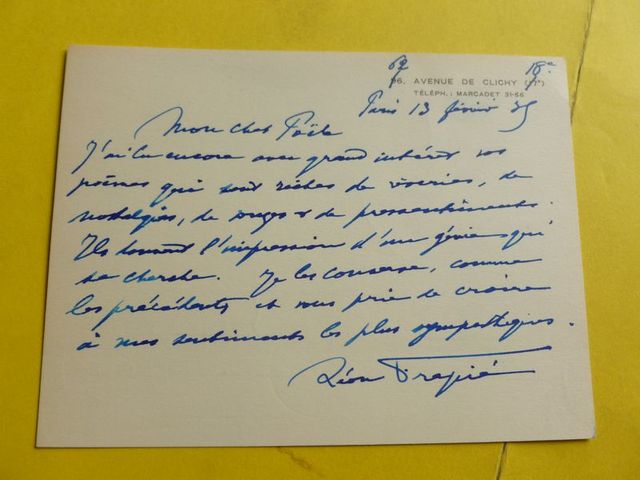 67 18e
96. AVENUE DE CLICHY (17e)
TÉLÉPH. : MARCADET 31-66
Paris 13 février 35
Mon cher Poète
J'ai lu encore avec grand intérêt vos
poèmes qui sont riches de rêveries, de
nostalgies, de songes et de pressentiments.
Ils donnent l'impression d'un génie qui
se cherche. Je les conserve, comme
les précédents, et vous prie de croire
à mes sentiments les plus sympathiques.
Léon Frapié